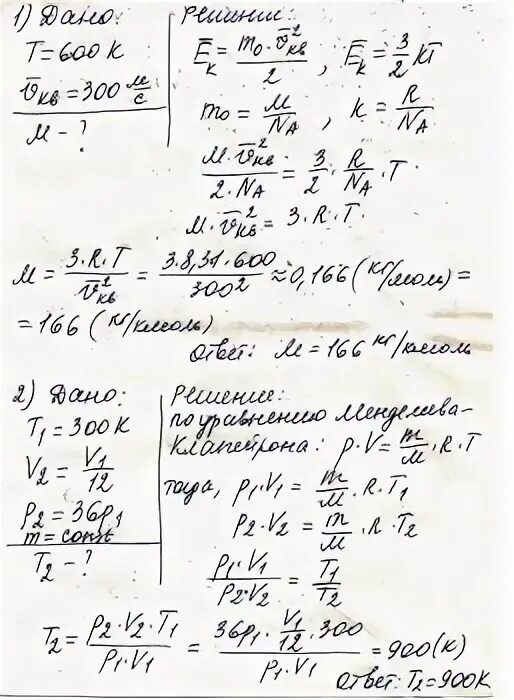 1) Дано:
T = 600 K
v̅кв = 300 м/с
М - ?
Решение:
E̅к = m₀·v̅²кв / 2 , E̅к = 3/2 kT
m₀ = М/N_A , k = R/N_A
М·v̅²кв / 2·N_A = 3/2 · R/N_A · T
М·v̅²кв = 3·R·T
М = 3·R·T / v̅²кв = 3·8,31·600 / 300² ≈ 0,166 (кг/моль) =
= 166 (кг/кмоль)
Ответ: М = 166 кг/кмоль
2) Дано:
T₁ = 300 K
V₂ = V₁/12
p₂ = 36p₁
m = const
T₂ - ?
Решение:
по уравнению Менделеева-
Клапейрона: p·V = m/М · R·T
тогда, p₁·V₁ = m/М · R·T₁
p₂·V₂ = m/М · R·T₂
p₁·V₁ / p₂·V₂ = T₁/T₂
T₂ = p₂·V₂·T₁ / p₁·V₁ = 36p₁·V₁/12·300 / p₁·V₁ = 900 (K)
Ответ: T₂ = 900K